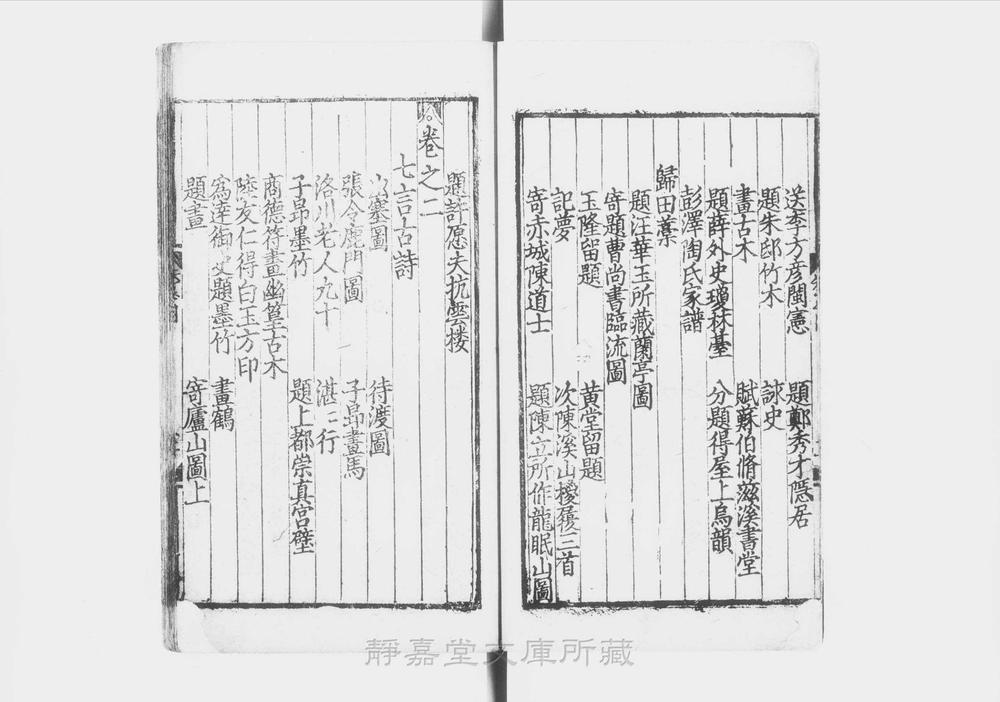 送李方彦閩憲　題鄭秀才隱居
題朱邸竹木　詠史
畫古木　賦蘇伯脩滋溪書堂
題薛外史瓊林臺　分題得屋上烏韻
彭澤陶氏家譜
歸田藁
題汪華玉所藏蘭亭圖
寄題曹尚書臨流圖
玉隆留題　黄堂留題
記夢　次陳溪山椶履三首
寄赤城陳道士　題陳立所作龍眠山圖
題許愿夫抗雲楼
卷之二
七言古詩
出塞圖　待渡圖
張令鹿門圖　子昂畫馬
洛川老人九十　湛湛行
子昂墨竹　題上都崇真宫壁
商德符畫幽篁古木
陸友仁得白玉方印
為達御史題墨竹　畫鶴
題畫　寄廬山圖上
靜嘉堂文庫所藏